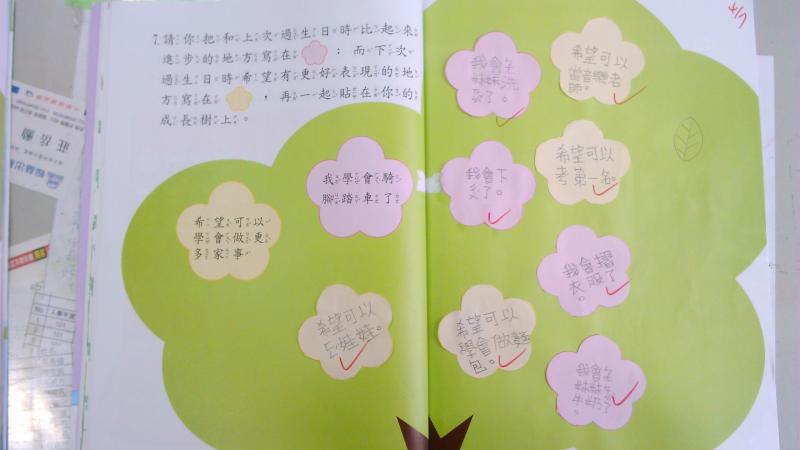 7.請你把和上次過生日時比起來
進步的地方寫在；而下次
過生日時希望有更好表現的地
方寫在，再一起貼在你的
成長樹上。
我學會騎
腳踏車了
希望可以
學會做更
多家事
希望可以
ㄋ娃娃。
我會ㄅ
妹妹洗
澡了。
希望可以
當音樂老
師。
我會下
了。
希望可以
考第一名。
我會摺
衣服了
。
希望可以
學會做麵
包。
我會ㄅ
妹妹
牛奶了
。
莊岳勳